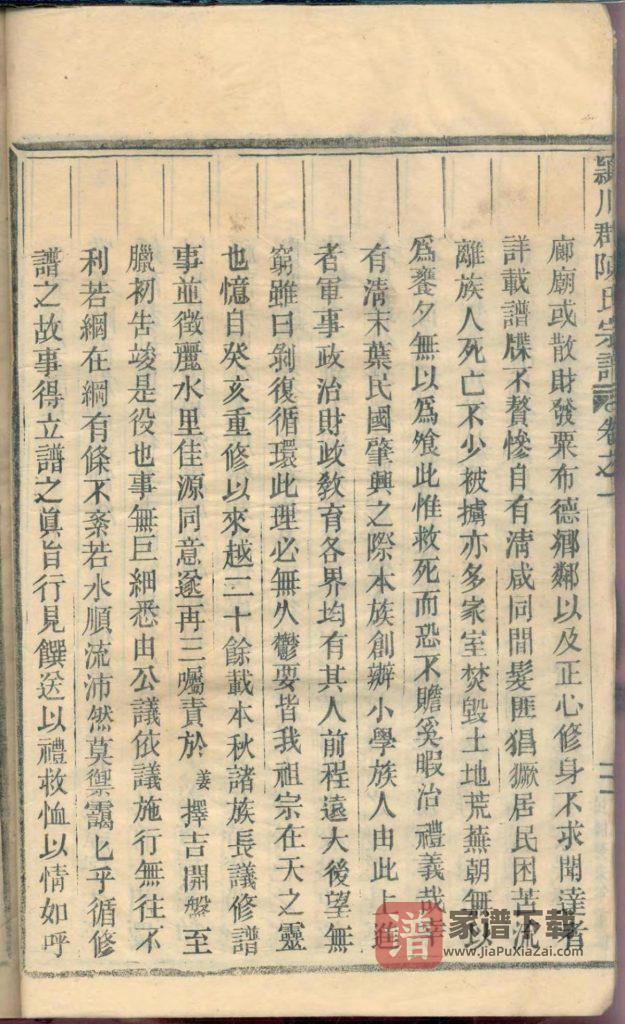 潁川郡陳氏宗譜 卷之一 三
廊廟或散財發粟布德鄉鄰以及正心修身不求聞達者
詳載譜牒不贅慘自有清咸同間髮匪猖獗居民困苦流
離族人死亡不少被擄亦多家室焚毀土地荒蕪朝無以
爲饔夕無以爲飧此惟救死而恐不贍奚暇治禮義哉幸
有清末葉民國肇興之際本族創辦小學族人由此上進
者軍事政治財政敎育各界均有其人前程遠大後望無
窮雖曰剝復循環此理必無久鬱要皆我祖宗在天之靈
也憶自癸亥重修以來越二十餘載本秋諸族長議修譜
事並徵麗水里佳源同意遂再三囑責於姜擇吉開盤至
臘初吿竣是役也事無巨細悉由公議依議施行無往不
利若綱在綱有條不紊若水順流沛然莫禦靄匕乎循修
譜之故事得立譜之眞旨行見饌送以禮救恤以情如呼
譜 家谱下载
www.jiaPuXiaZai.com